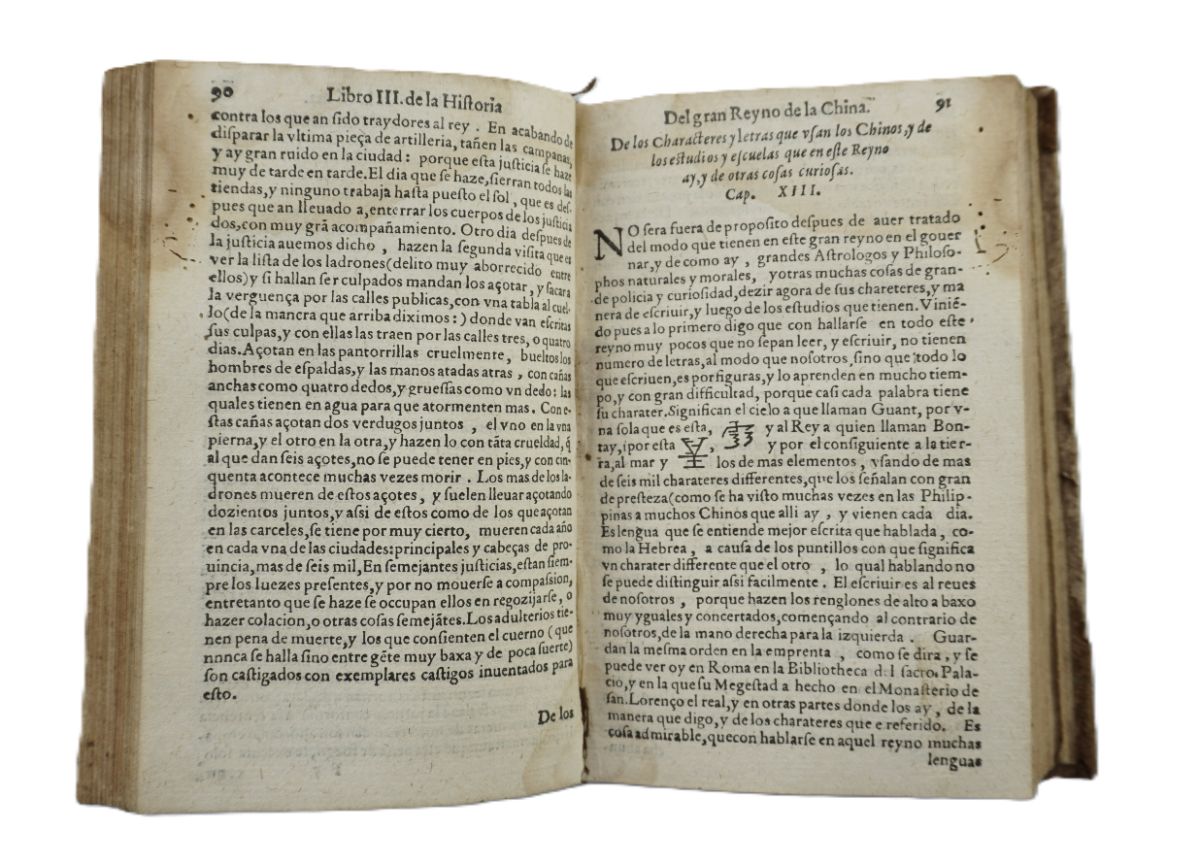 90
Libro III. de la Hiſtoria
contra los que an ſido traydores al rey. En acabando de
diſparar la vltima pieça de artilleria, tañen las campanas,
y ay gran ruido en la ciudad: porque eſta juſticia ſe haze
muy de tarde en tarde. El dia que ſe haze, ſierran todos las
tiendas, y ninguno trabaja haſta pueſto el ſol, que es deſ-
pues que an lleuado a, enterrar los cuerpos de los juſticia
dos, con muy grã acompañamiento. Otro dia deſpues de
la juſticia auemos dicho, hazen la ſegunda viſita que es
ver la liſta de los ladrones (delito muy aborrecido entre
ellos) y ſi hallan ſer culpados mandan los açotar, y ſacar a
la verguença por las calles publicas, con vna tabla al cuel-
lo (de la manera que arriba diximos:) donde van eſcritas
ſus culpas, y con ellas las traen por las calles tres, o quatro
dias. Açotan en las pantorrillas cruelmente, bueltos los
hombres de eſpaldas, y las manos atadas atras, con cañas
anchas como quatro dedos, y grueſſas como vn dedo: las
quales tienen en agua para que atormenten mas. Con e-
ſtas cañas açotan dos verdugos juntos, el vno en la vna
pierna, y el otro en la otra, y hazen lo con tãta crueldad, q̃
al que dan ſeis açotes, no ſe puede tener en pies, y con cin-
quenta acontece muchas vezes morir. Los mas de los la-
drones mueren de eſtos açotes, y ſuelen lleuar açotando
dozientos juntos, y aſsi de eſtos como de los que açotan
en las carceles, ſe tiene por muy cierto, mueren cada año
en cada vna de las ciudades: principales y cabeças de pro-
uincia, mas de ſeis mil, En ſemejantes juſticias, eſtan ſiem-
pre los Iuezes preſentes, y por no mouerſe a compaſsion,
entretanto que ſe haze ſe occupan ellos en regozijarſe, o
hazer colacion, o otras coſas ſemejãtes. Los adulterios tie-
nen pena de muerte, y los que conſienten el cuerno (que
nnnca ſe halla ſino entre gẽte muy baxa y de poca ſuerte)
ſon caſtigados con exemplares caſtigos inuentados para
eſto.
De los
Del gran Reyno de la China. 91
De los Characteres y letras que vſan los Chinos, y de
los eſtudios y eſcuelas que en eſte Reyno
ay, y de otras coſas curioſas.
Cap. XIII.
NO ſera fuera de propoſito deſpues de auer tratado
del modo que tienen en eſte gran reyno en el gouer
nar, y de como ay, grandes Aſtrologos y Philoſo-
phos naturales y morales, y otras muchas coſas de gran-
de policia y curioſidad, dezir agora de ſus chareteres, y ma
nera de eſcriuir, y luego de los eſtudios que tienen. Vinié-
do pues a lo primero digo que con hallarſe en todo eſte
reyno muy pocos que no ſepan leer, y eſcriuir, no tienen
numero de letras, al modo que noſotros, ſino que todo lo
que eſcriuen, es por figuras, y lo aprenden en mucho tiem-
po, y con gran difficultad, porque caſi cada palabra tiene
ſu charater. Significan el cielo a que llaman Guant, por v-
na ſola que es eſta, y al Rey a quien llaman Bon-
tay, i por eſta , y por el conſiguiente a la tier-
ra, al mar y los de mas elementos, vſando de mas
de ſeis mil charateres differentes, que los ſeñalan con gran
de preſteza (como ſe ha viſto muchas vezes en las Philip-
pinas a muchos Chinos que alli ay, y vienen cada dia.
Es lengua que ſe entiende mejor eſcrita que hablada, co-
mo la Hebrea, a cauſa de los puntillos con que ſignifica
vn charater differente que el otro, lo qual hablando no
ſe puede diſtinguir aſsi facilmente. El eſcriuir es al reues
de noſotros, porque hazen los renglones de alto a baxo
muy yguales y concertados, començando al contrario de
noſotros, de la mano derecha para la izquierda. Guar-
dan la meſma orden en la emprenta, como ſe dira, y ſe
puede ver oy en Roma en la Bibliotheca d:l ſacro Pala-
cio, y en la que ſu Megeſtad a hecho en el Monaſterio de
ſan Lorenço el real, y en otras partes donde los ay, de la
manera que digo, y de los charateres que e referido. Es
coſa admirable, que con hablarſe en aquel reyno muchas
lenguas